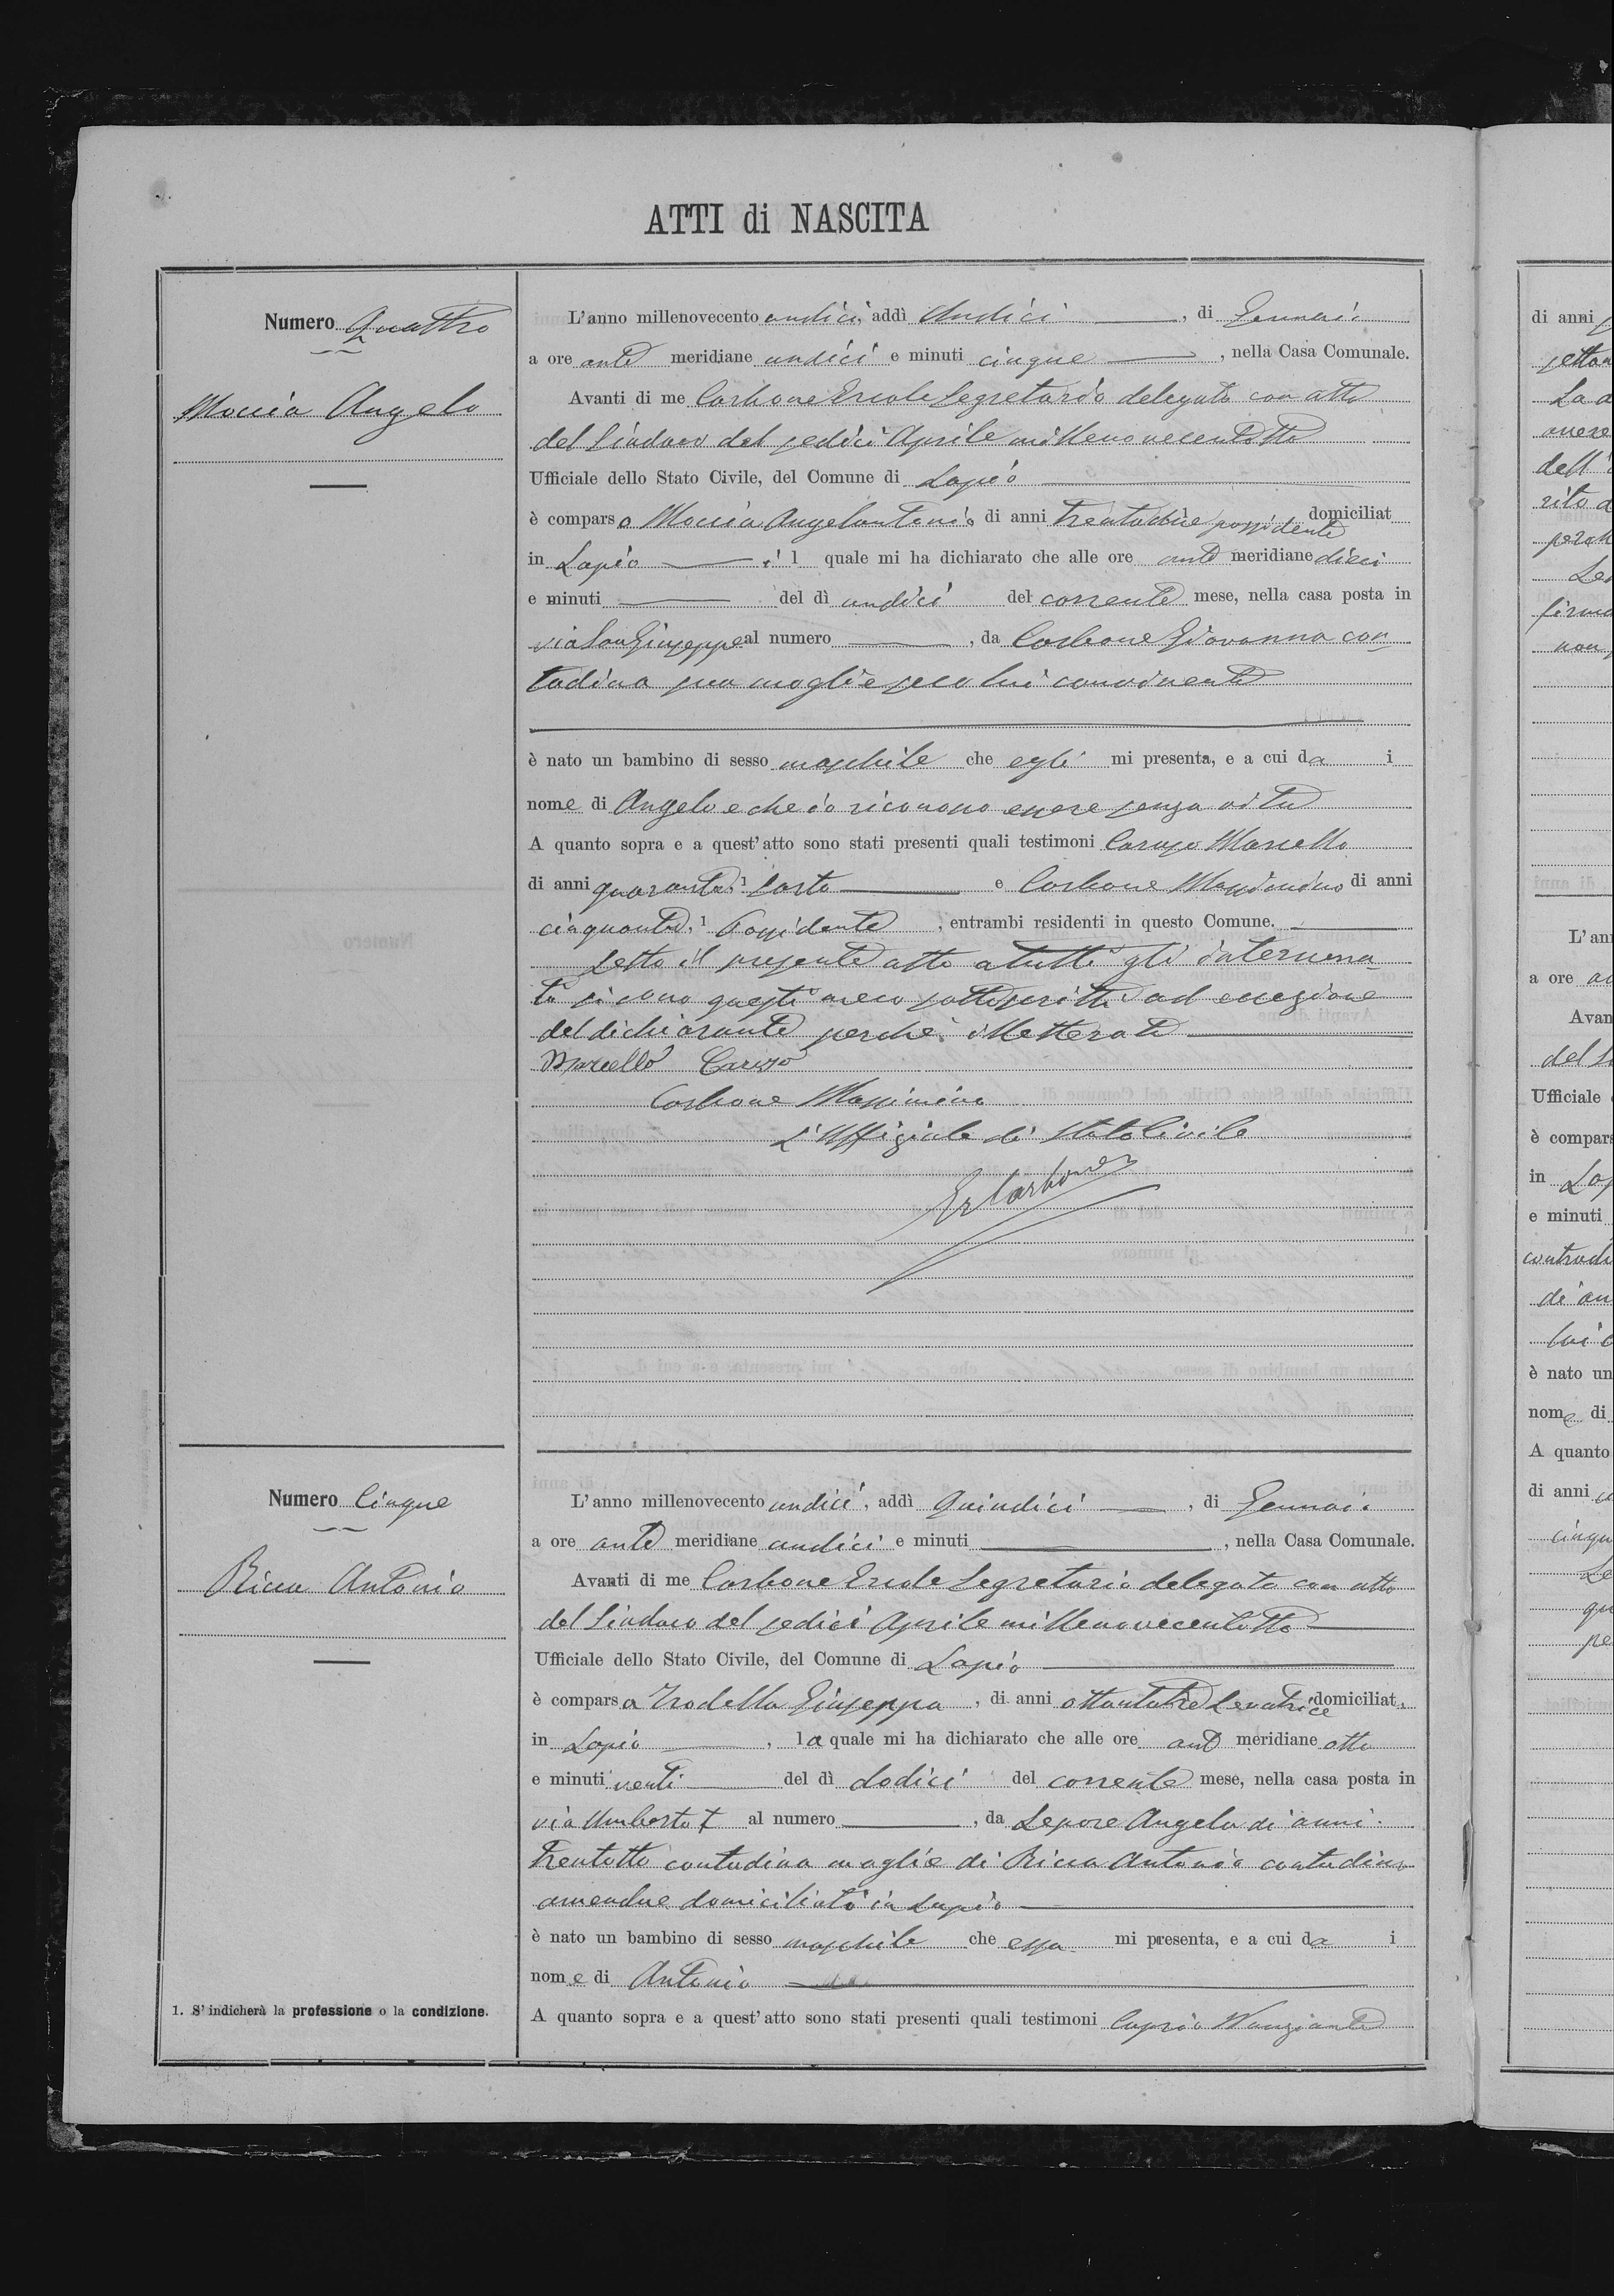 ATTI di NASCITA
Numero Quattro
Moccia Angelo
L'anno millenovecento undici, addì Undici, di Gennaio
a ore ante meridiane undici e minuti cinque, nella Casa Comunale.
Avanti di me Carbone Ercole Segretario delegato con atto
del Sindaco del sedici Aprile millenovecentotto
Ufficiale dello Stato Civile, del Comune di Lapio
è comparso Moccia Angelantonio di anni trentadue possidente domiciliat
in Lapio, il quale mi ha dichiarato che alle ore ante meridiane dieci
e minuti del dì undici del corrente mese, nella casa posta in
via San Giuseppe al numero, da Carbone Giovanna con
tadina sua moglie seco lui convivente
è nato un bambino di sesso maschile che egli mi presenta, e a cui da i
nome di Angelo e che io riconosco essere senza vita
A quanto sopra e a quest'atto sono stati presenti quali testimoni Caruso Marcello
di anni quaranta, 1 sarto e Carbone Massimino di anni
cinquanta, 1 Possidente, entrambi residenti in questo Comune.
Letto il presente atto a tutti gli intervenu-
ti si sono questi meco sottoscritti ad eccezione
del dichiarante perché illetterato
Marcello Caruso
Carbone Massimino
L'Uffiziale di Stato Civile
Er Carbone
Numero Cinque
Ricca Antonio
L'anno millenovecento undici, addì Quindici, di Gennaio
a ore ante meridiane undici e minuti, nella Casa Comunale.
Avanti di me Carbone Ercole Segretario delegato con atto
del Sindaco del sedici Aprile millenovecentotto
Ufficiale dello Stato Civile, del Comune di Lapio
è comparsa Trodella Giuseppa, di anni ottantatre Levatrice domiciliat
in Lapio, la quale mi ha dichiarato che alle ore ante meridiane otto
e minuti venti del dì dodici del corrente mese, nella casa posta in
via Umberto I al numero, da Lepore Angela di anni
trentotto contadina moglie di Ricca Antonio contadino
amendue domiciliati in Lapio
è nato un bambino di sesso maschile che essa mi presenta, e a cui da i
nome di Antonio
A quanto sopra e a quest'atto sono stati presenti quali testimoni Caprio Nunziante
1. S'indicherà la professione o la condizione.
di anni
La
dell'
L'an
a ore
Avan
del
Ufficiale
è compars
in
e minuti
è nato un
nome di
A quanto
di anni